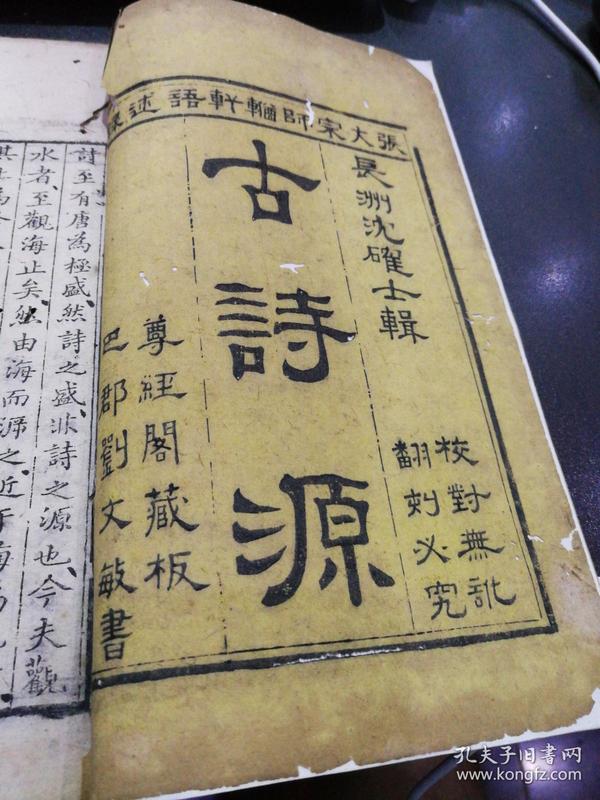 張大宗師輶軒語述
長洲沈確士輯
校對無訛
翻刻必究
古詩源
尊經閣藏板
巴郡劉文敏書
詩至有唐為極盛然詩之盛非詩之源也今夫觀
水者至觀海止矣然由海而溯之近于海
孔夫子旧书网
www.kongfz.com